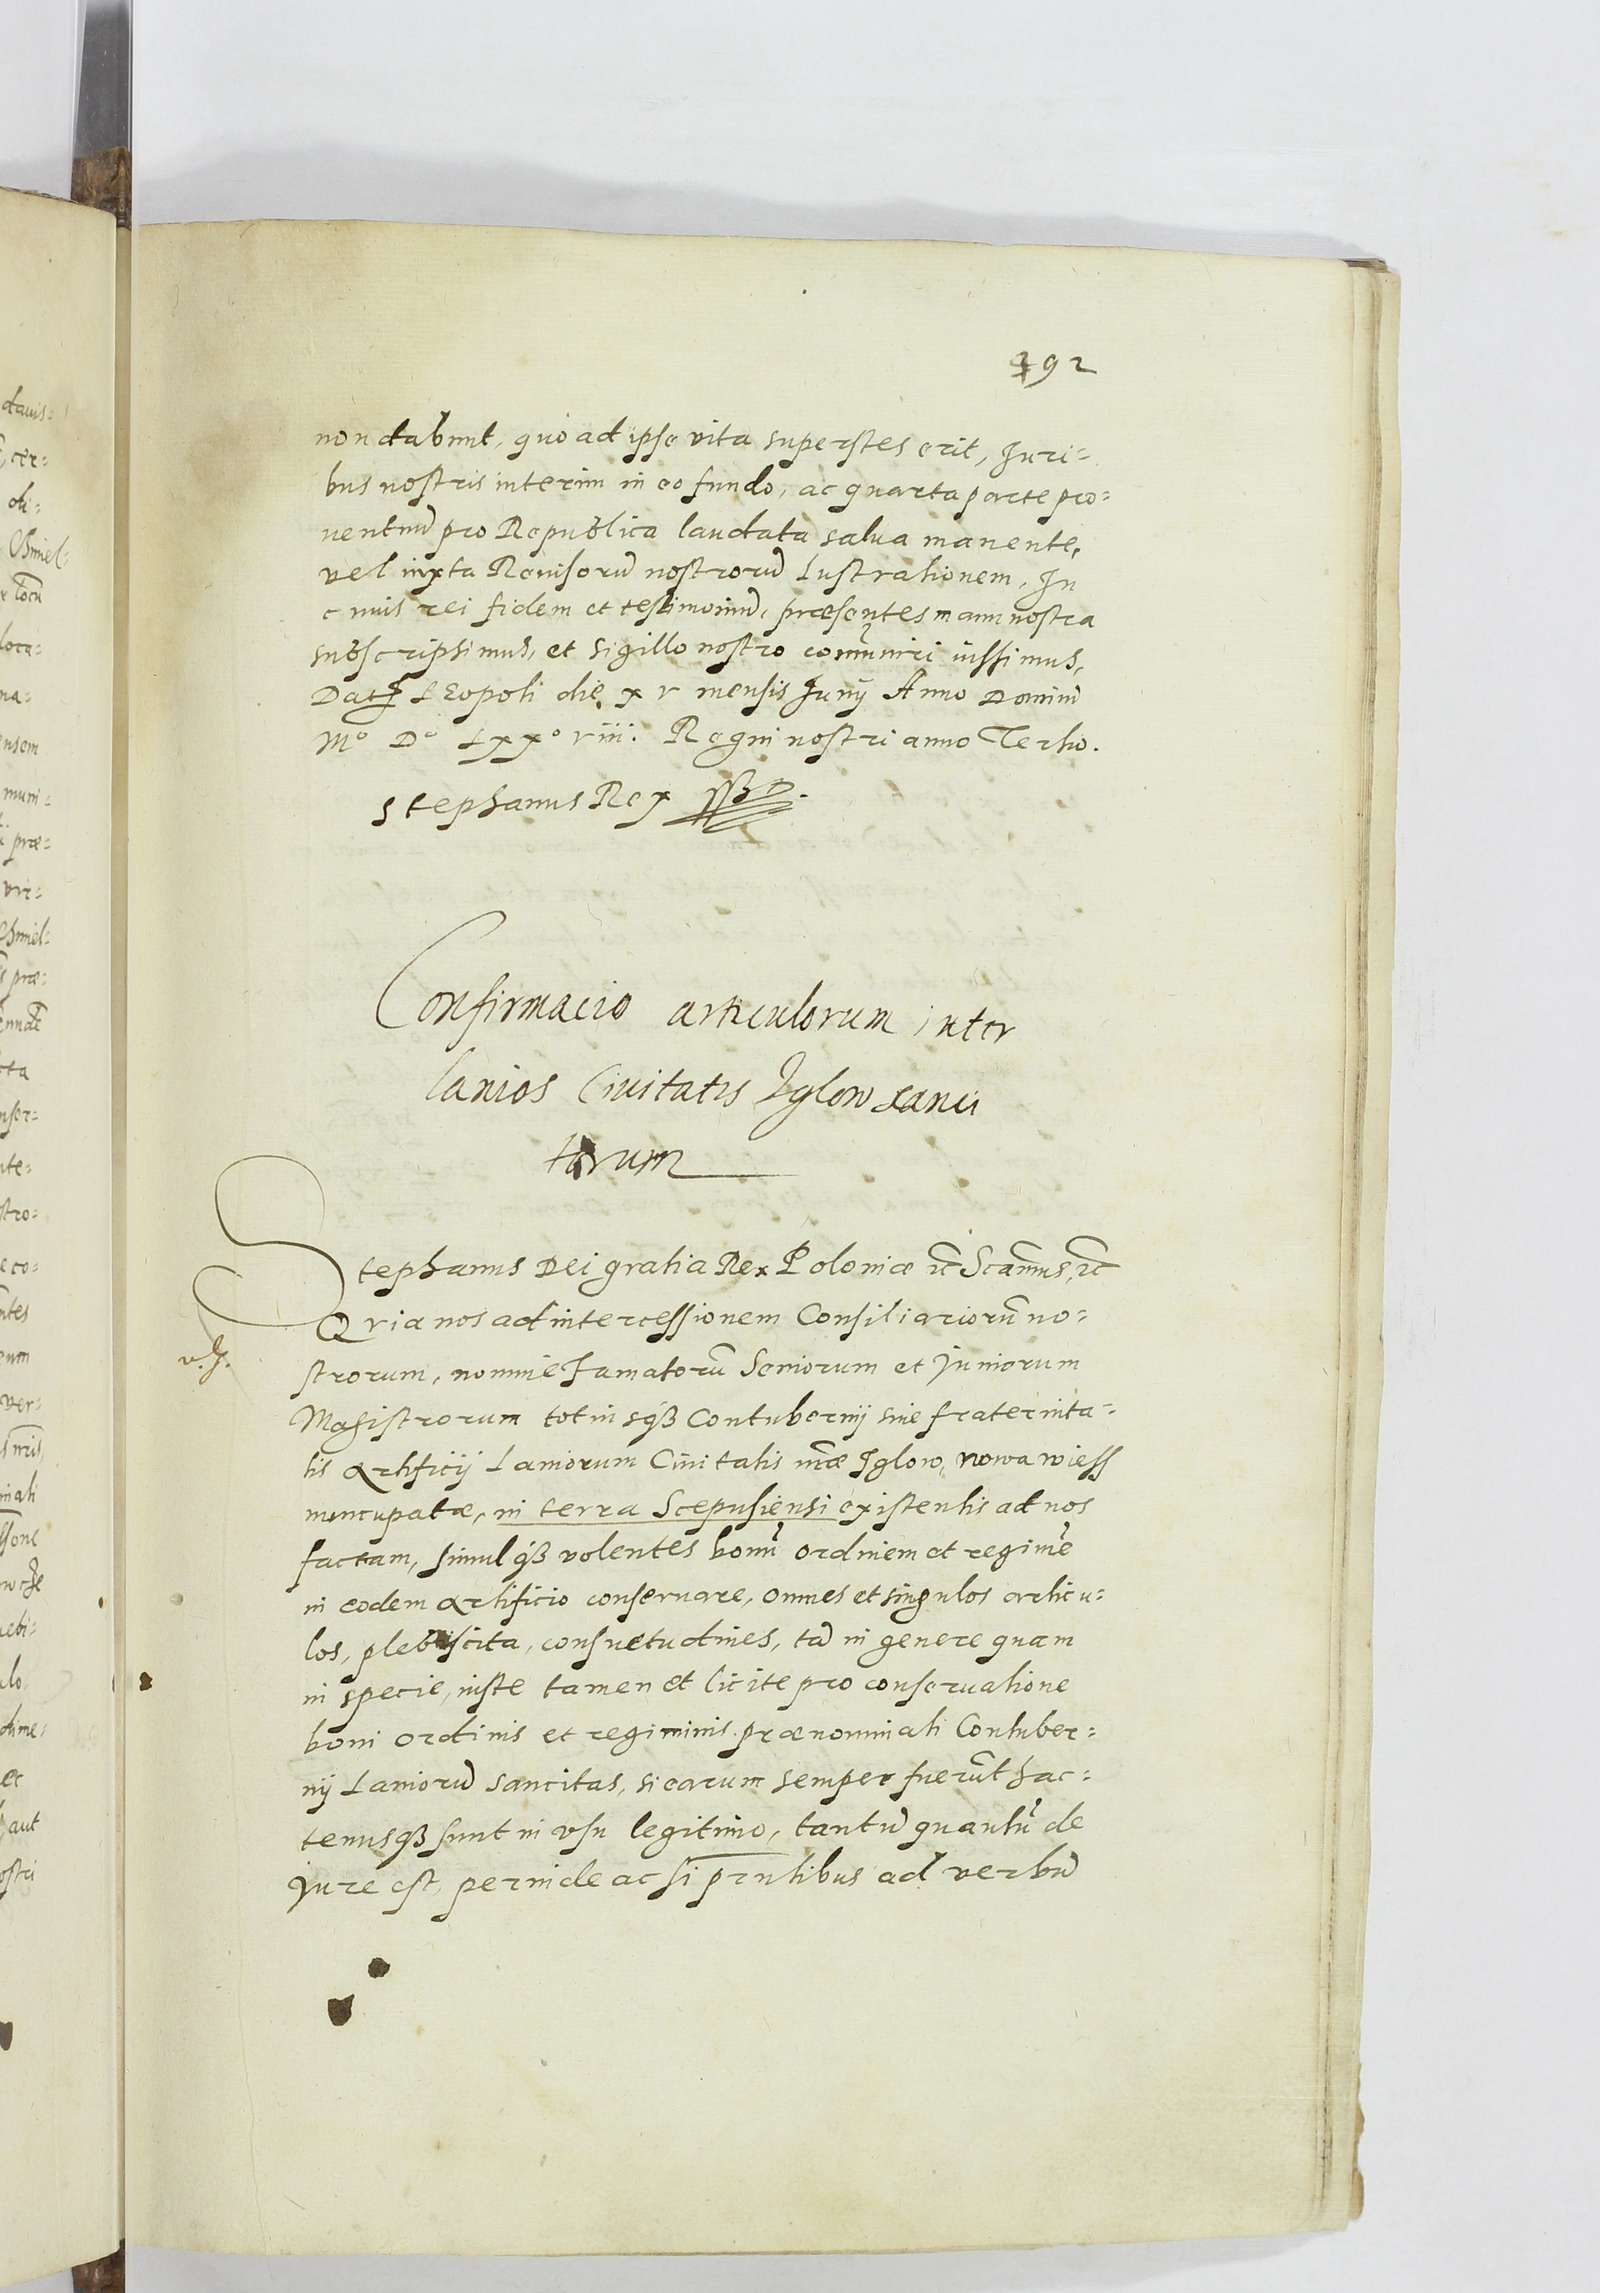 392
non dabunt, quo ad ipse vita superstes erit, Juri=
bus nostris interim in eo fundo, ac quarta parte pro=
uentuū pro Republica laudata salua manente,
vel iuxta Reuisorū nostrorū Lustrationem, In
cuius rei fidem et testimoniū, præsentes manu nostra
subscripsimus, et sigillo nostro com̄uniri iussimus,
Dat Leopoli die x v mensis Junij Anno Domini
Mo Do Lxxo viii. Regni nostri anno Tertio.
Stephanus Rex
Confirmacio articulorum inter
lanios Ciuitatis Iglow sanci
torum
Stephanus Dei gratia Rex Poloniæ etc Scam̄us, etc
Quia nos ad intercessionem Consiliariorū no=
v. J.
strorum, nomine Famatorū Seniorum et Juniorum
Magistrorum totiusqȝ Contubernij siue fraternita=
tis Artificij Laniorum Ciuitatis n̄ræ Iglow, nowa wiess
nuncupatæ, in terra Scepusiensi existentis ad nos
factam, simulqȝ volentes bonū ordinem et regimē
in eodem artificio conseruare, omnes et singulos articu=
los, plebiscita, consuetudines, tā in genere quam
in specie, iuste tamen et licite pro conseruatione
boni ordinis et regiminis prænominati Contuber=
nij Laniorū sancitas, si earum semper fuerūt hac=
tenusqȝ sunt in vsu legitimo, tantū quantū de
Jure est, perinde ac si prntibus ad verbū